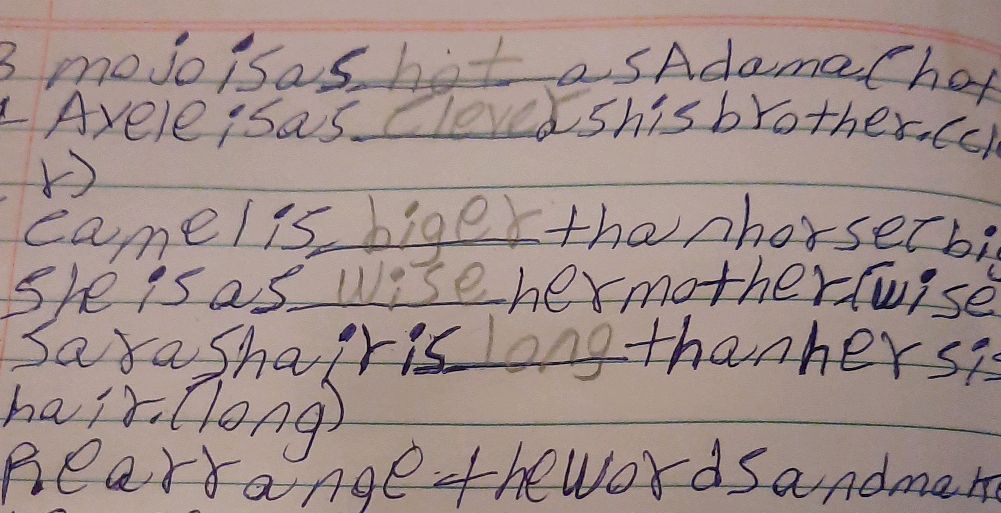 3 mojo is as hot as Adama (hot
Axele is as clever as his brother. (cl
r)
camel is biger than horse (big
She is as wise her mother (wise
Saras hair is long than her sis
hair. (long)
Rearrange the words and make